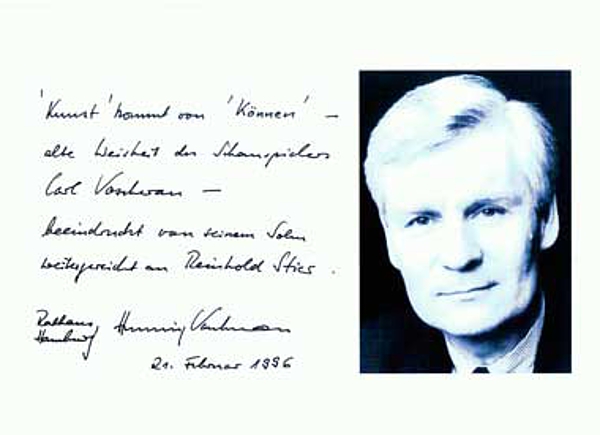 'Kunst' kommt von 'Können' –
alte Weisheit des Schauspielers
Carl Voscherau –
beeindruckt von seinem Sohn
weitergereicht an Reinhold Stier.
Rathaus Henning Voscherau
Hamburg
21. Februar 1996